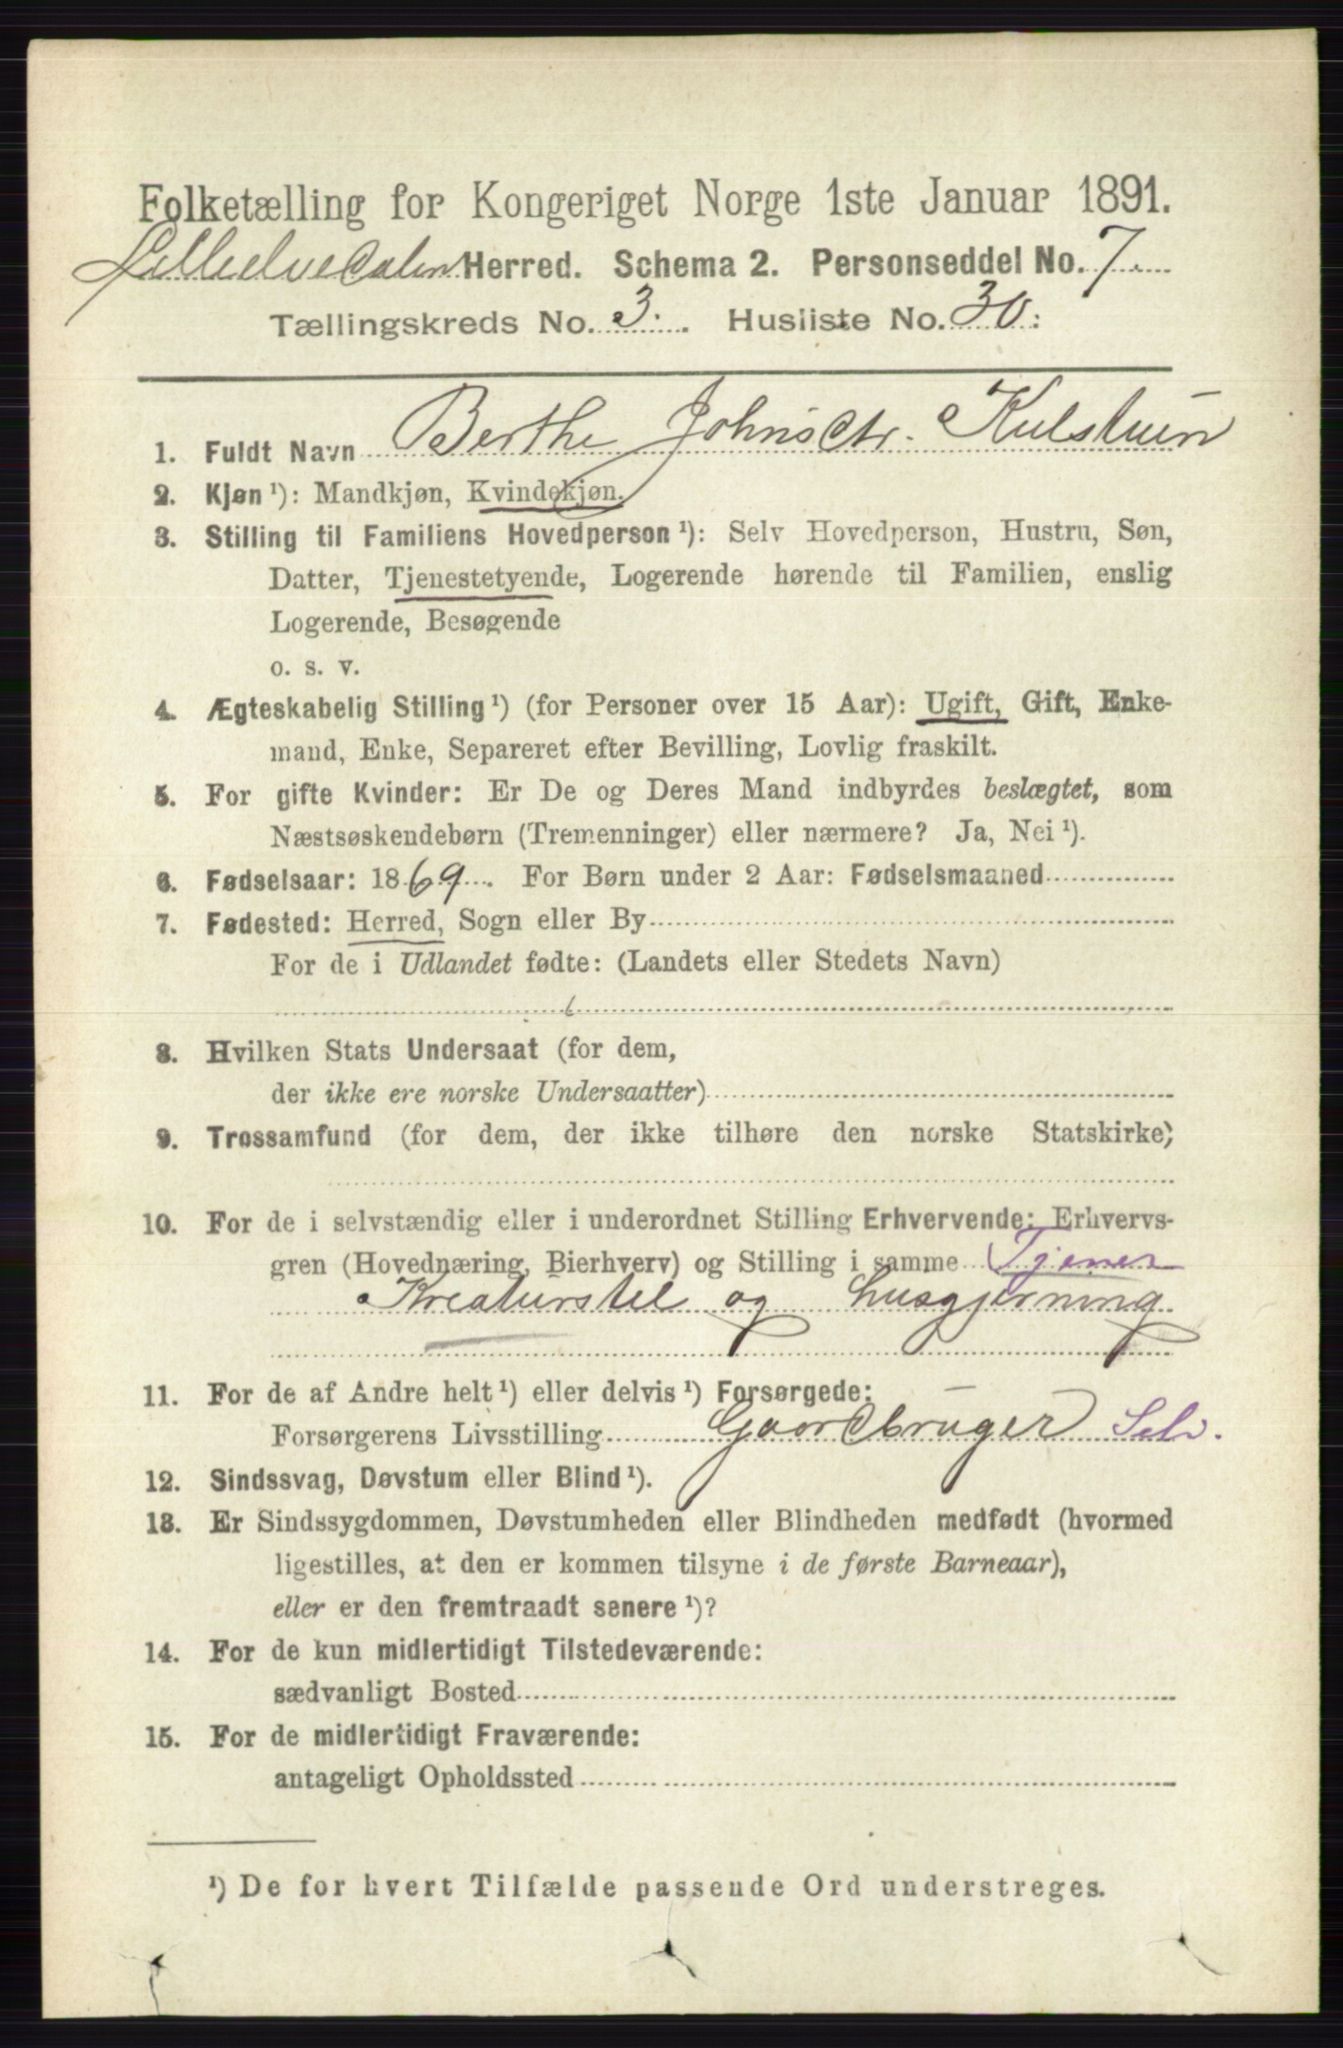 Folketælling for Kongeriget Norge 1ste Januar 1891.
Lilleelvedalen Herred. Schema 2. Personseddel No. 7.
Tællingskreds No. 3. Husliste No. 30.
1. Fuldt Navn Berthe Johnsdtr. Kulstuen
2. Kjøn ¹): Mandkjøn, Kvindekjøn.
3. Stilling til Familiens Hovedperson ¹): Selv Hovedperson, Hustru, Søn,
Datter, Tjenestetyende, Logerende hørende til Familien, enslig
Logerende, Besøgende
o. s. v.
4. Ægteskabelig Stilling ¹) (for Personer over 15 Aar): Ugift, Gift, Enke-
mand, Enke, Separeret efter Bevilling, Lovlig fraskilt.
5. For gifte Kvinder: Er De og Deres Mand indbyrdes beslægtet, som
Næstsøskendebørn (Tremenninger) eller nærmere? Ja, Nei ¹).
6. Fødselsaar: 1869. For Børn under 2 Aar: Fødselsmaaned
7. Fødested: Herred, Sogn eller By
For de i Udlandet fødte: (Landets eller Stedets Navn)
8. Hvilken Stats Undersaat (for dem,
der ikke ere norske Undersaatter)
9. Trossamfund (for dem, der ikke tilhøre den norske Statskirke)
10. For de i selvstændig eller i underordnet Stilling Erhvervende: Erhvervs-
gren (Hovednæring, Bierhverv) og Stilling i samme Tjener
Kreaturstel og husgjerning
11. For de af Andre helt ¹) eller delvis ¹) Forsørgede:
Forsørgerens Livsstilling Gaardbruger Selv.
12. Sindssvag, Døvstum eller Blind ¹).
13. Er Sindssygdommen, Døvstumheden eller Blindheden medfødt (hvormed
ligestilles, at den er kommen tilsyne i de første Barneaar),
eller er den fremtraadt senere ¹)?
14. For de kun midlertidigt Tilstedeværende:
sædvanligt Bosted
15. For de midlertidigt Fraværende:
antageligt Opholdssted
¹) De for hvert Tilfælde passende Ord understreges.